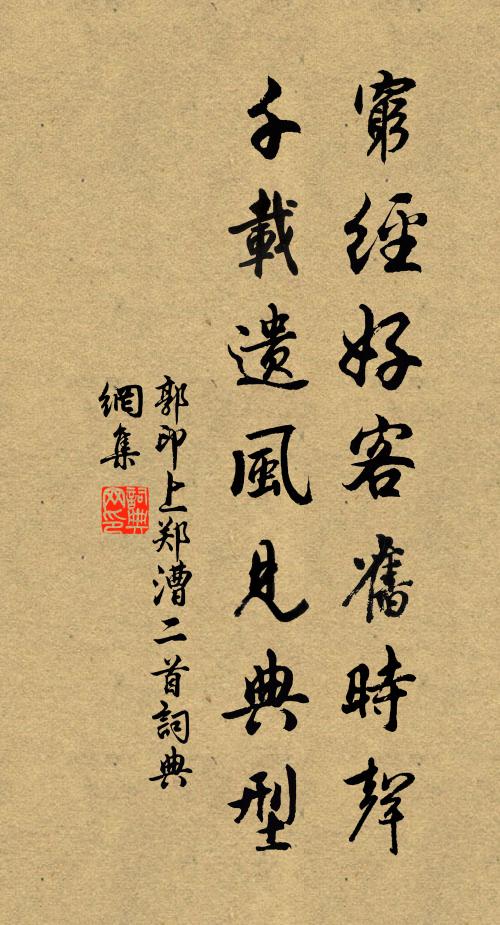 窮經好客舊時聲
千載遺風見典型
郭印上郑漕二首詞典
網集
詞典网印